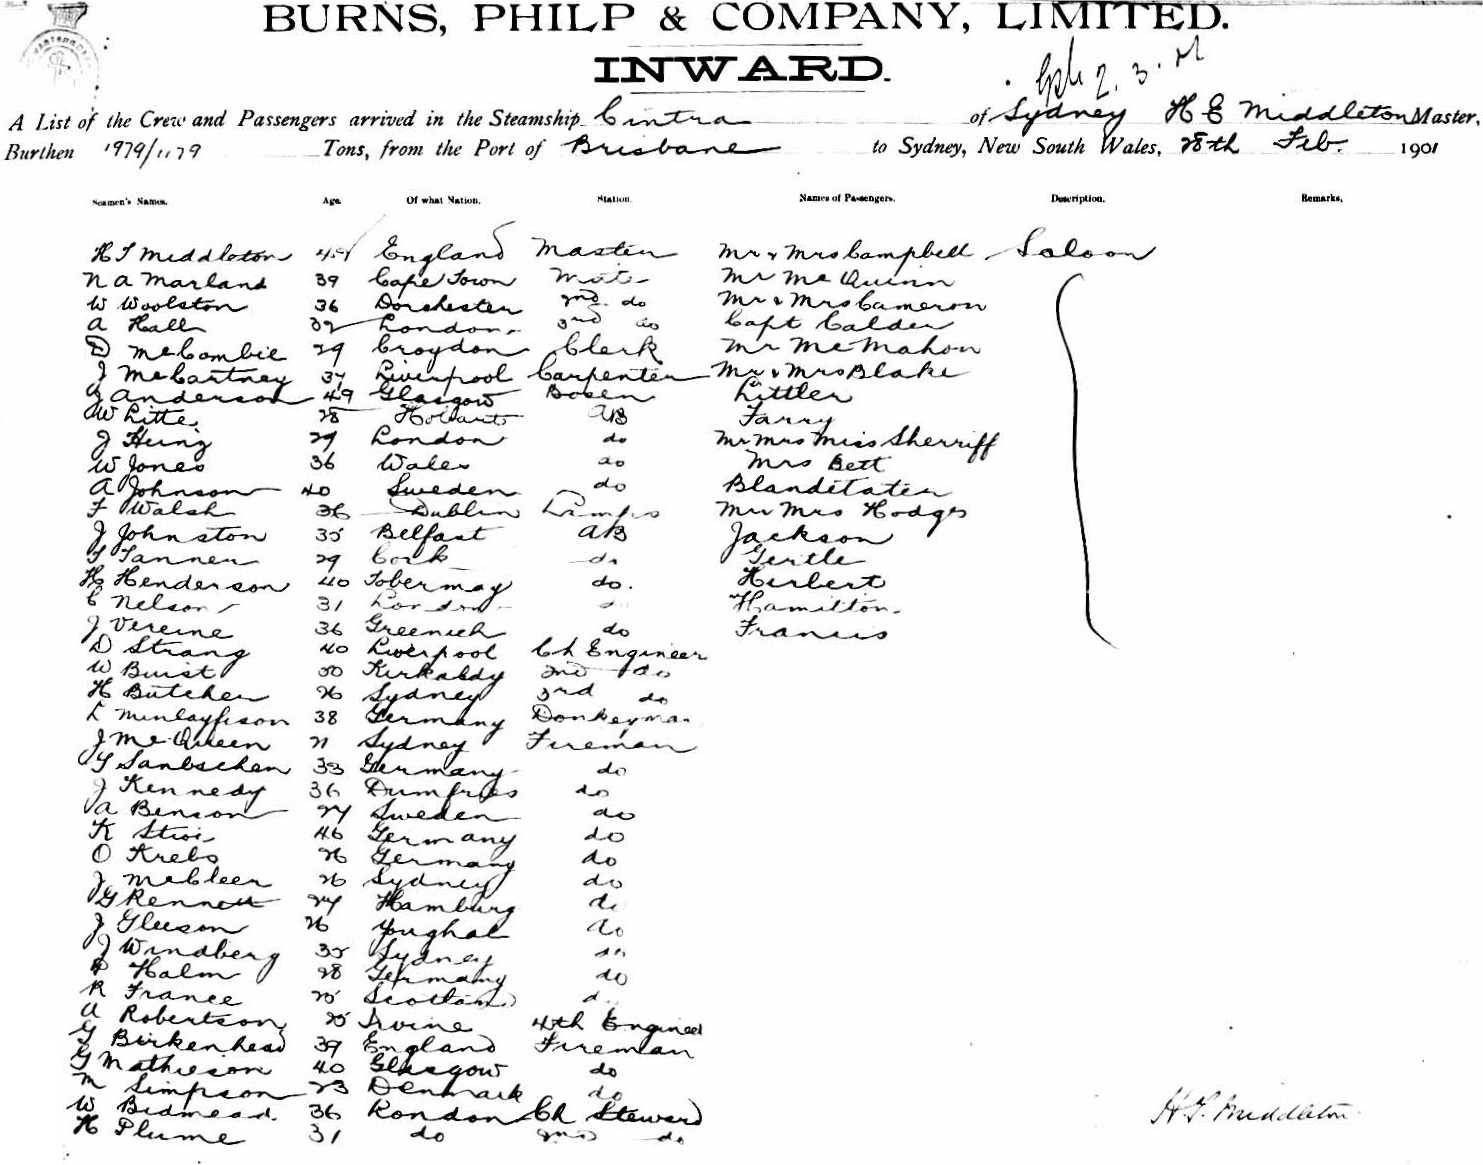 BURNS, PHILP & COMPANY, LIMITED.
INWARD.
A List of the Crew and Passengers arrived in the Steamship Cintra of Sydney H E Middleton Master,
Burthen 1979/1179 Tons, from the Port of Brisbane to Sydney, New South Wales, 28th Feb. 1901
Seamen's Names. Age. Of what Nation. Station. Names of Passengers. Description. Remarks.
H T Middleton England Master Mr & Mrs Campbell Saloon
N A Marland 39 Cape Town Mate Mr McQuinn
W Woolston 36 Dorchester 2nd do Mr & Mrs Cameron
A Hall 32 London 3rd do Capt Calder
D McCombie 29 Croydon Clerk Mr McMahon
J McCartney 37 Liverpool Carpenter Mr & Mrs Blake
J Anderson 49 Glasgow Bosen Littler
W Litte 28 Hobart AB Farry
J Heing 29 London do Mr Mrs Miss Sherriff
W Jones 36 Wales do Mrs Bett
A Johnson 40 Sweden do
F Walsh 36 Dublin Lamps Mr Mrs Hodges
J Johnston 35 Belfast AB Jackson
T Tanner 29 Cork do Gertle
H Henderson 40 Tobermay do. Herbert
C Nelson 31 London do Hamilton.
J Vereine 36 Greenich do Francis
D Strang 40 Liverpool Ch Engineer
W Buist 50 Kirkaldy 2nd do
H Butcher 26 Sydney 3rd do
L 38 Germany Donkeyman
J McQueen 21 Sydney Fireman
33 Germany do
J Kennedy 36 Dumfries do
A Benson 27 Sweden do
K 46 Germany do
O Krebs 26 Germany do
J McCleer 26 Sydney do
G Rennett 27 Hamburg do
J Gleeson 26 Youghal do
J Windberg 35 Sydney do
Halm 28 Germany do
R France 25 Scotland do
A Robertson 25 Irvine 4th Engineer
G Birkenhead 39 England Fireman
G Mathieson 40 Glasgow do
M Simpson 23 Denmark do
W Bidmead 36 London Ch Steward
H Plume 31 do 2nd do
H. T. Middleton